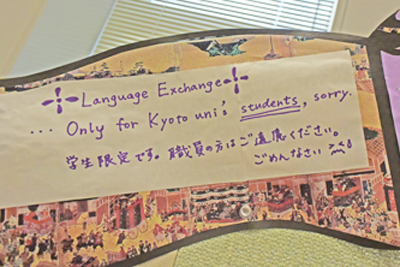 Language Exchange
... Only for Kyoto uni's students, sorry.
学生限定です。職員の方はご遠慮ください。
ごめんなさい >_<!